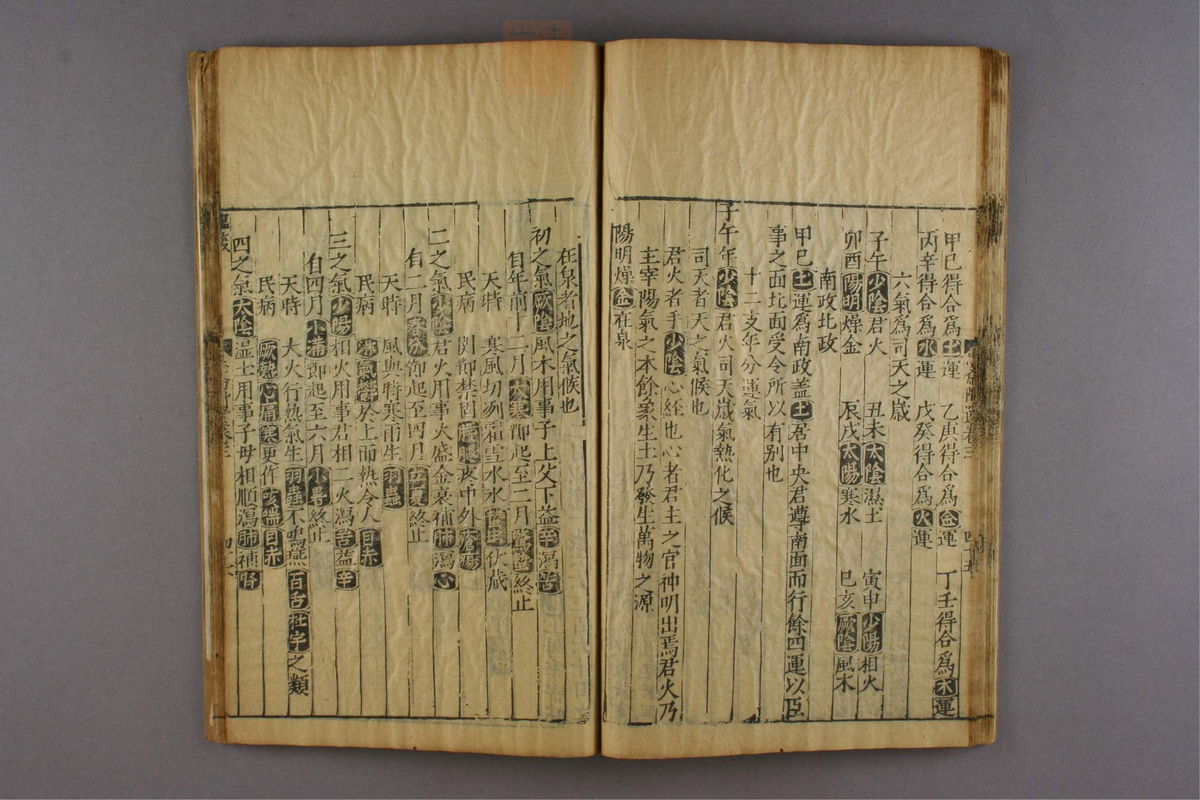 甲己得合為土運 乙庚得合為金運 丁壬得合為木運
丙辛得合為水運 戊癸得合為火運
六氣為司天之歲
子午少陰君火 丑未太陰濕土 寅申少陽相火
卯酉陽明燥金 辰戌太陽寒水 巳亥厥陰風木
南政北政
甲巳土運為南政盖土居中央君尊南面而行餘四運以臣
事之面北面受令所以有别也
十二支年分運氣
子午年少陰君火司天歲氣熱化之候
司天者天之氣候也
君火者手少陰心經也心者君主之官神明出焉君火乃
主宰陽氣之本餘象生土乃發生萬物之源
陽明燥金在泉
在泉者地之氣候也
初之氣厥陰風木用事子上父下益辛瀉苦
自年前十二月大寒節起至二月驚蟄終止
天時 寒風切冽霜雪水氷蟄虫伏藏
民病 関節禁固腰腿疼中外瘡瘍
二之氣少陰君火用事火盛金衰補肺瀉心
自二月春分節起至四月立夏終止
天時 風與時寒雨生羽蟲
民病 淋氣鬱於上而熱令人目赤
三之氣少陽相火用事君相二火瀉苦益辛
自四月小滿節起至六月小暑終止
天時 大火行熱氣生羽蟲不鳴燕百舌杜宇之類
民病 厥熱心痛寒更作咳喘目赤
四之氣太陰温土用事子母相順瀉肺補腎